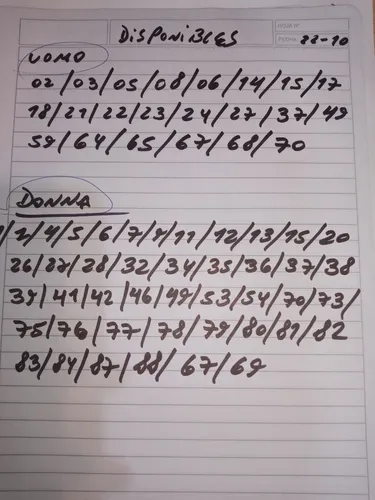 DISPONIBLES
FECHA 22-10
UOMO
02/03/05/08/06/14/15/17
18/21/22/23/24/27/37/49
59/64/65/67/68/70
DONNA
1/2/4/5/6/7/9/11/12/13/15/20
26/27/28/32/34/35/36/37/38
39/41/42/46/49/53/54/70/73/
75/76/77/78/79/80/81/82
83/84/87/88/67/69